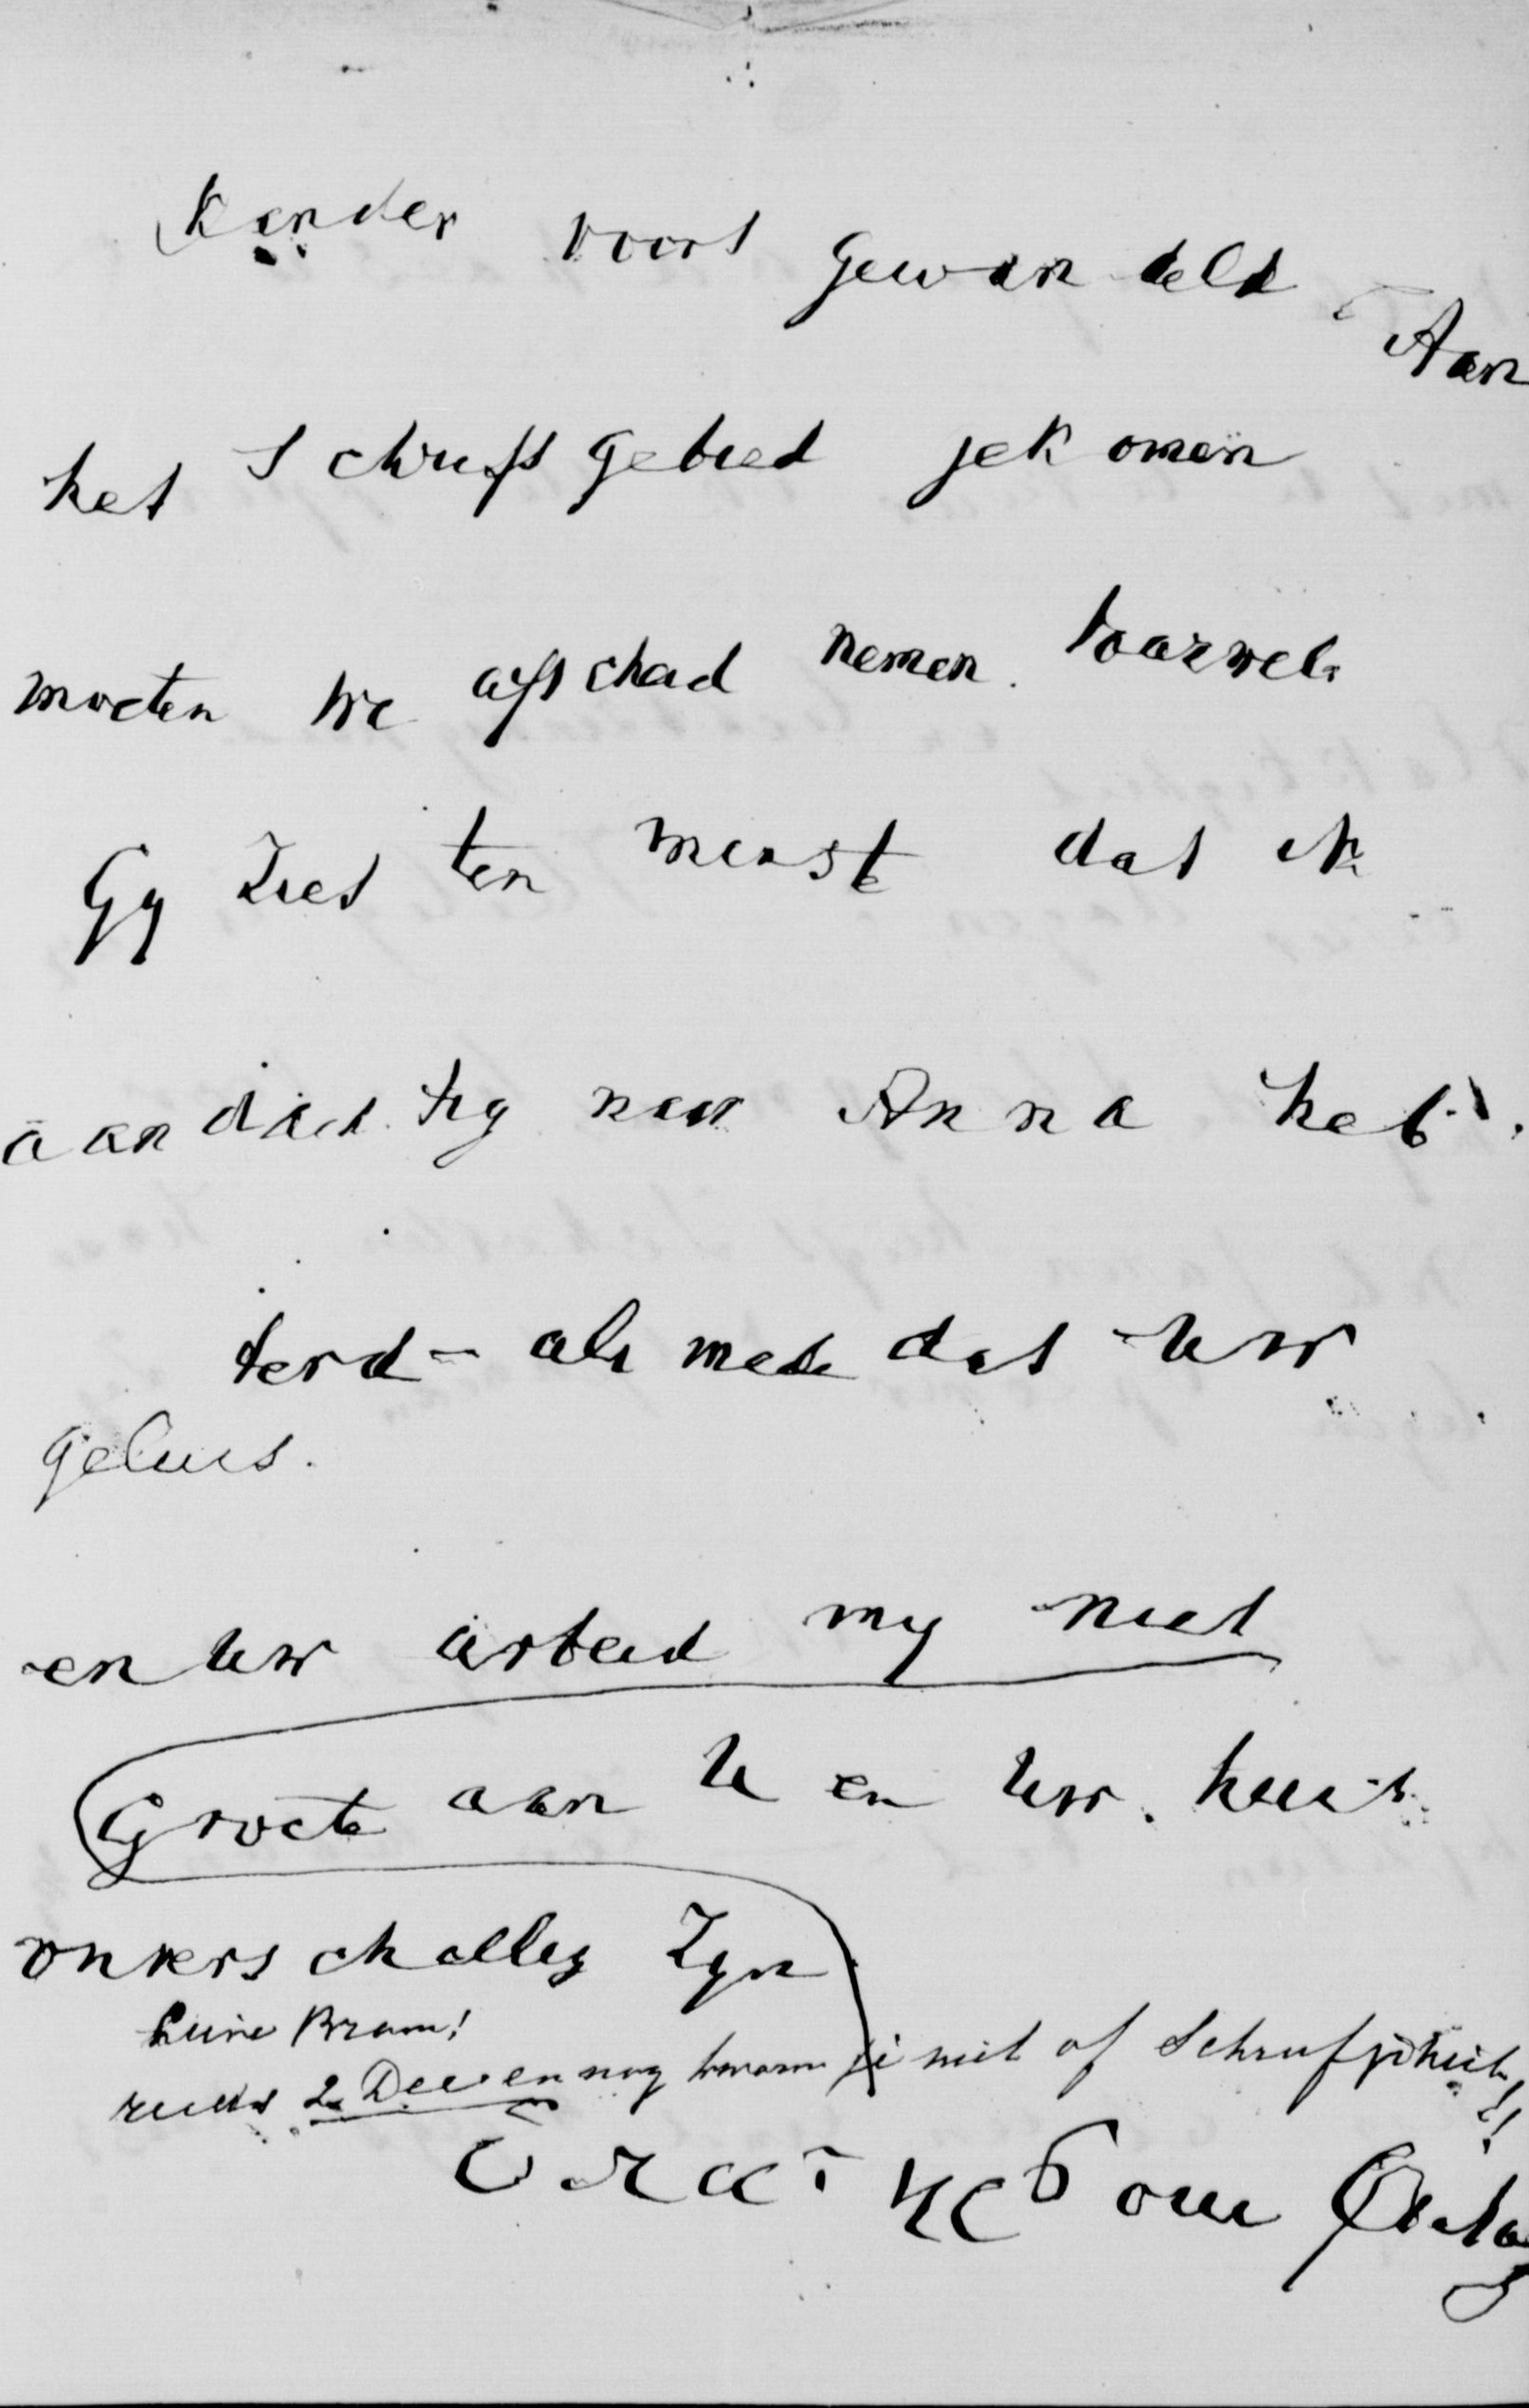 Kander voort gewandeld
Aan
het Schrifs gebied gekomen
moeten we afscheid nemen. Vaarwel.
Gy Ziet ten minste dat ik
aandachtig naar Anna heb
terd - als mede dat uw
geluis.
en uw arbeid my niet
Groete aan U en uw. huis
onverschallig Zyn
Lieve Bram!
reeds 2 Dec. en nog kwam je niet of schreef je niet!!